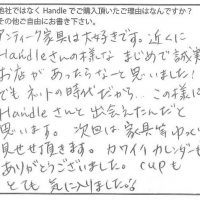 他社ではなく Handle でご購入頂いたご理由はなんですか?
その他ご自由にお書き下さい。
アンティーク家具は大好きです。近くに
Handleさんの様な まじめで誠実
お店が あったらなーと思いました!
でも ネットの時代だから... この様に
Handleさんと出会えたんだと
思います。 次回は家具等ゆっく
見せて頂きます。カワイイカレンダーも
ありがとうございました。cupも
とても 気に入りました。